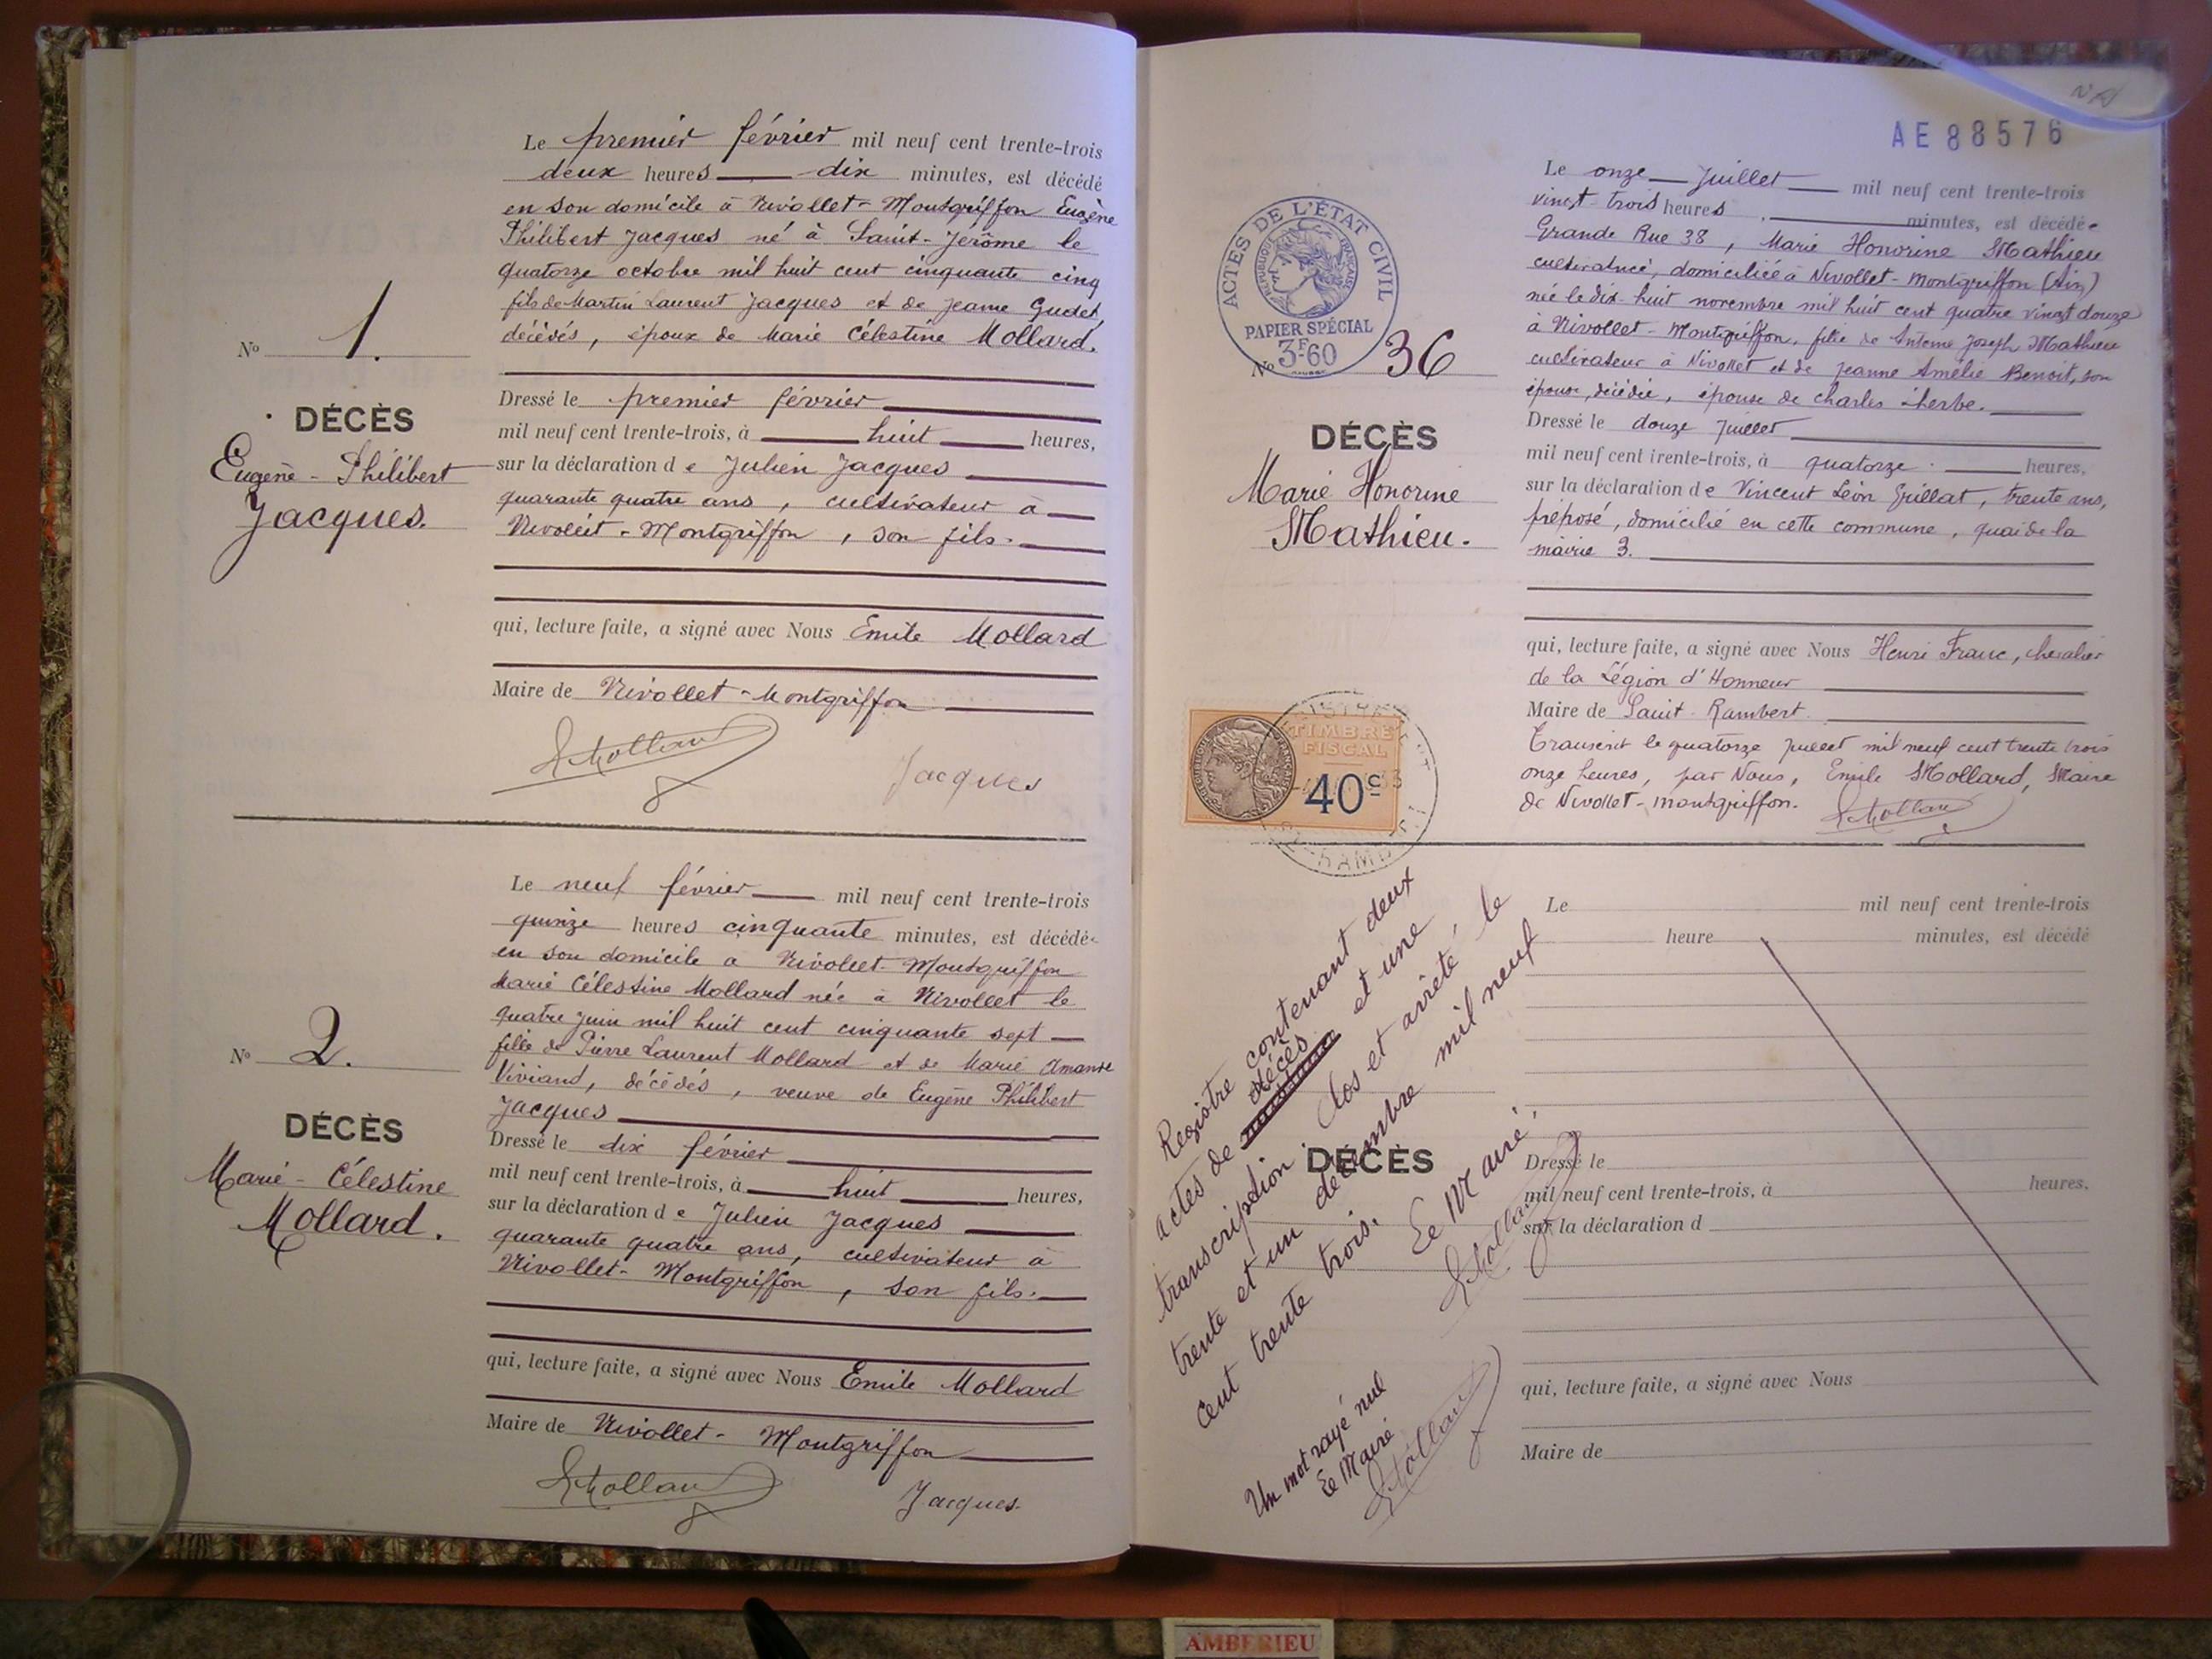 Le premier février mil neuf cent trente-trois
deux heures dix minutes, est décédé
en son domicile à Nivollet-Montgriffon Eugène
Philibert Jacques né à Saint-Jérôme le
quatorze octobre mil huit cent cinquante cinq
fils de Martin Laurent Jacques et de Jeanne Gudet,
décédés, époux de Marie Célestine Mollard.
No 1.
DÉCÈS
Eugène-Philibert
Jacques.
Dressé le premier février
mil neuf cent trente-trois, à huit heures,
sur la déclaration de Julien Jacques
quarante quatre ans, cultivateur à
Nivollet-Montgriffon, son fils.
qui, lecture faite, a signé avec Nous Emile Mollard
Maire de Nivollet-Montgriffon
EMollard
Jacques
Le neuf février mil neuf cent trente-trois
quinze heures cinquante minutes, est décédée
en son domicile a Nivollet-Montgriffon
Marie Célestine Mollard née à Nivollet le
quatre juin mil huit cent cinquante sept
fille de Pierre Laurent Mollard et de Marie Amante
Viviand, décédés, veuve de Eugène Philibert
Jacques
No 2.
DÉCÈS
Marie-Célestine
Mollard.
Dressé le dix février
mil neuf cent trente-trois, à huit heures,
sur la déclaration de Julien Jacques
quarante quatre ans, cultivateur à
Nivollet-Montgriffon, son fils.
qui, lecture faite, a signé avec Nous Emile Mollard
Maire de Nivollet-Montgriffon
EMollard
Jacques.
AE 88576
Le onze Juillet mil neuf cent trente-trois
vingt-trois heures minutes, est décédée
Grande Rue 38, Marie Honorine Mathieu
cultivatrice, domiciliée à Nivollet-Montgriffon (Ain)
née le dix-huit novembre mil huit cent quatre vingt douze
à Nivollet-Montgriffon, fille de Antoine Joseph Mathieu
cultivateur à Nivollet et de Jeanne Amélie Benoit, son
épouse, décédée, épouse de Charles Lherbe.
ACTES DE L'ÉTAT CIVIL
RÉPUBLIQUE FRANÇAISE
PAPIER SPÉCIAL
3F60
No 36
DÉCÈS
Marie Honorine
Mathieu.
Dressé le douze Juillet
mil neuf cent trente-trois, à quatorze heures,
sur la déclaration de Vincent Léon Grillat, trente ans,
préposé, domicilié en cette commune, quai de la
mairie 3.
qui, lecture faite, a signé avec Nous Henri Franc, chevalier
de la Légion d'Honneur
Maire de Saint-Rambert
Transcrit le quatorze juillet mil neuf cent trente trois
onze heures, par Nous, Emile Mollard, Maire
de Nivollet-Montgriffon.
EMollard
TIMBRE
FISCAL
40c
Registre contenant deux
décès
actes de et une
transcription clos et arrêté le
trente et un décembre mil neuf
cent trente trois.
Le Maire,
EMollard
Un mot rayé nul
Le Maire
EMollard
Le mil neuf cent trente-trois
heure minutes, est décédé
DÉCÈS
Dressé le
mil neuf cent trente-trois, à heures,
sur la déclaration d
qui, lecture faite, a signé avec Nous
Maire de
AMBERIEU